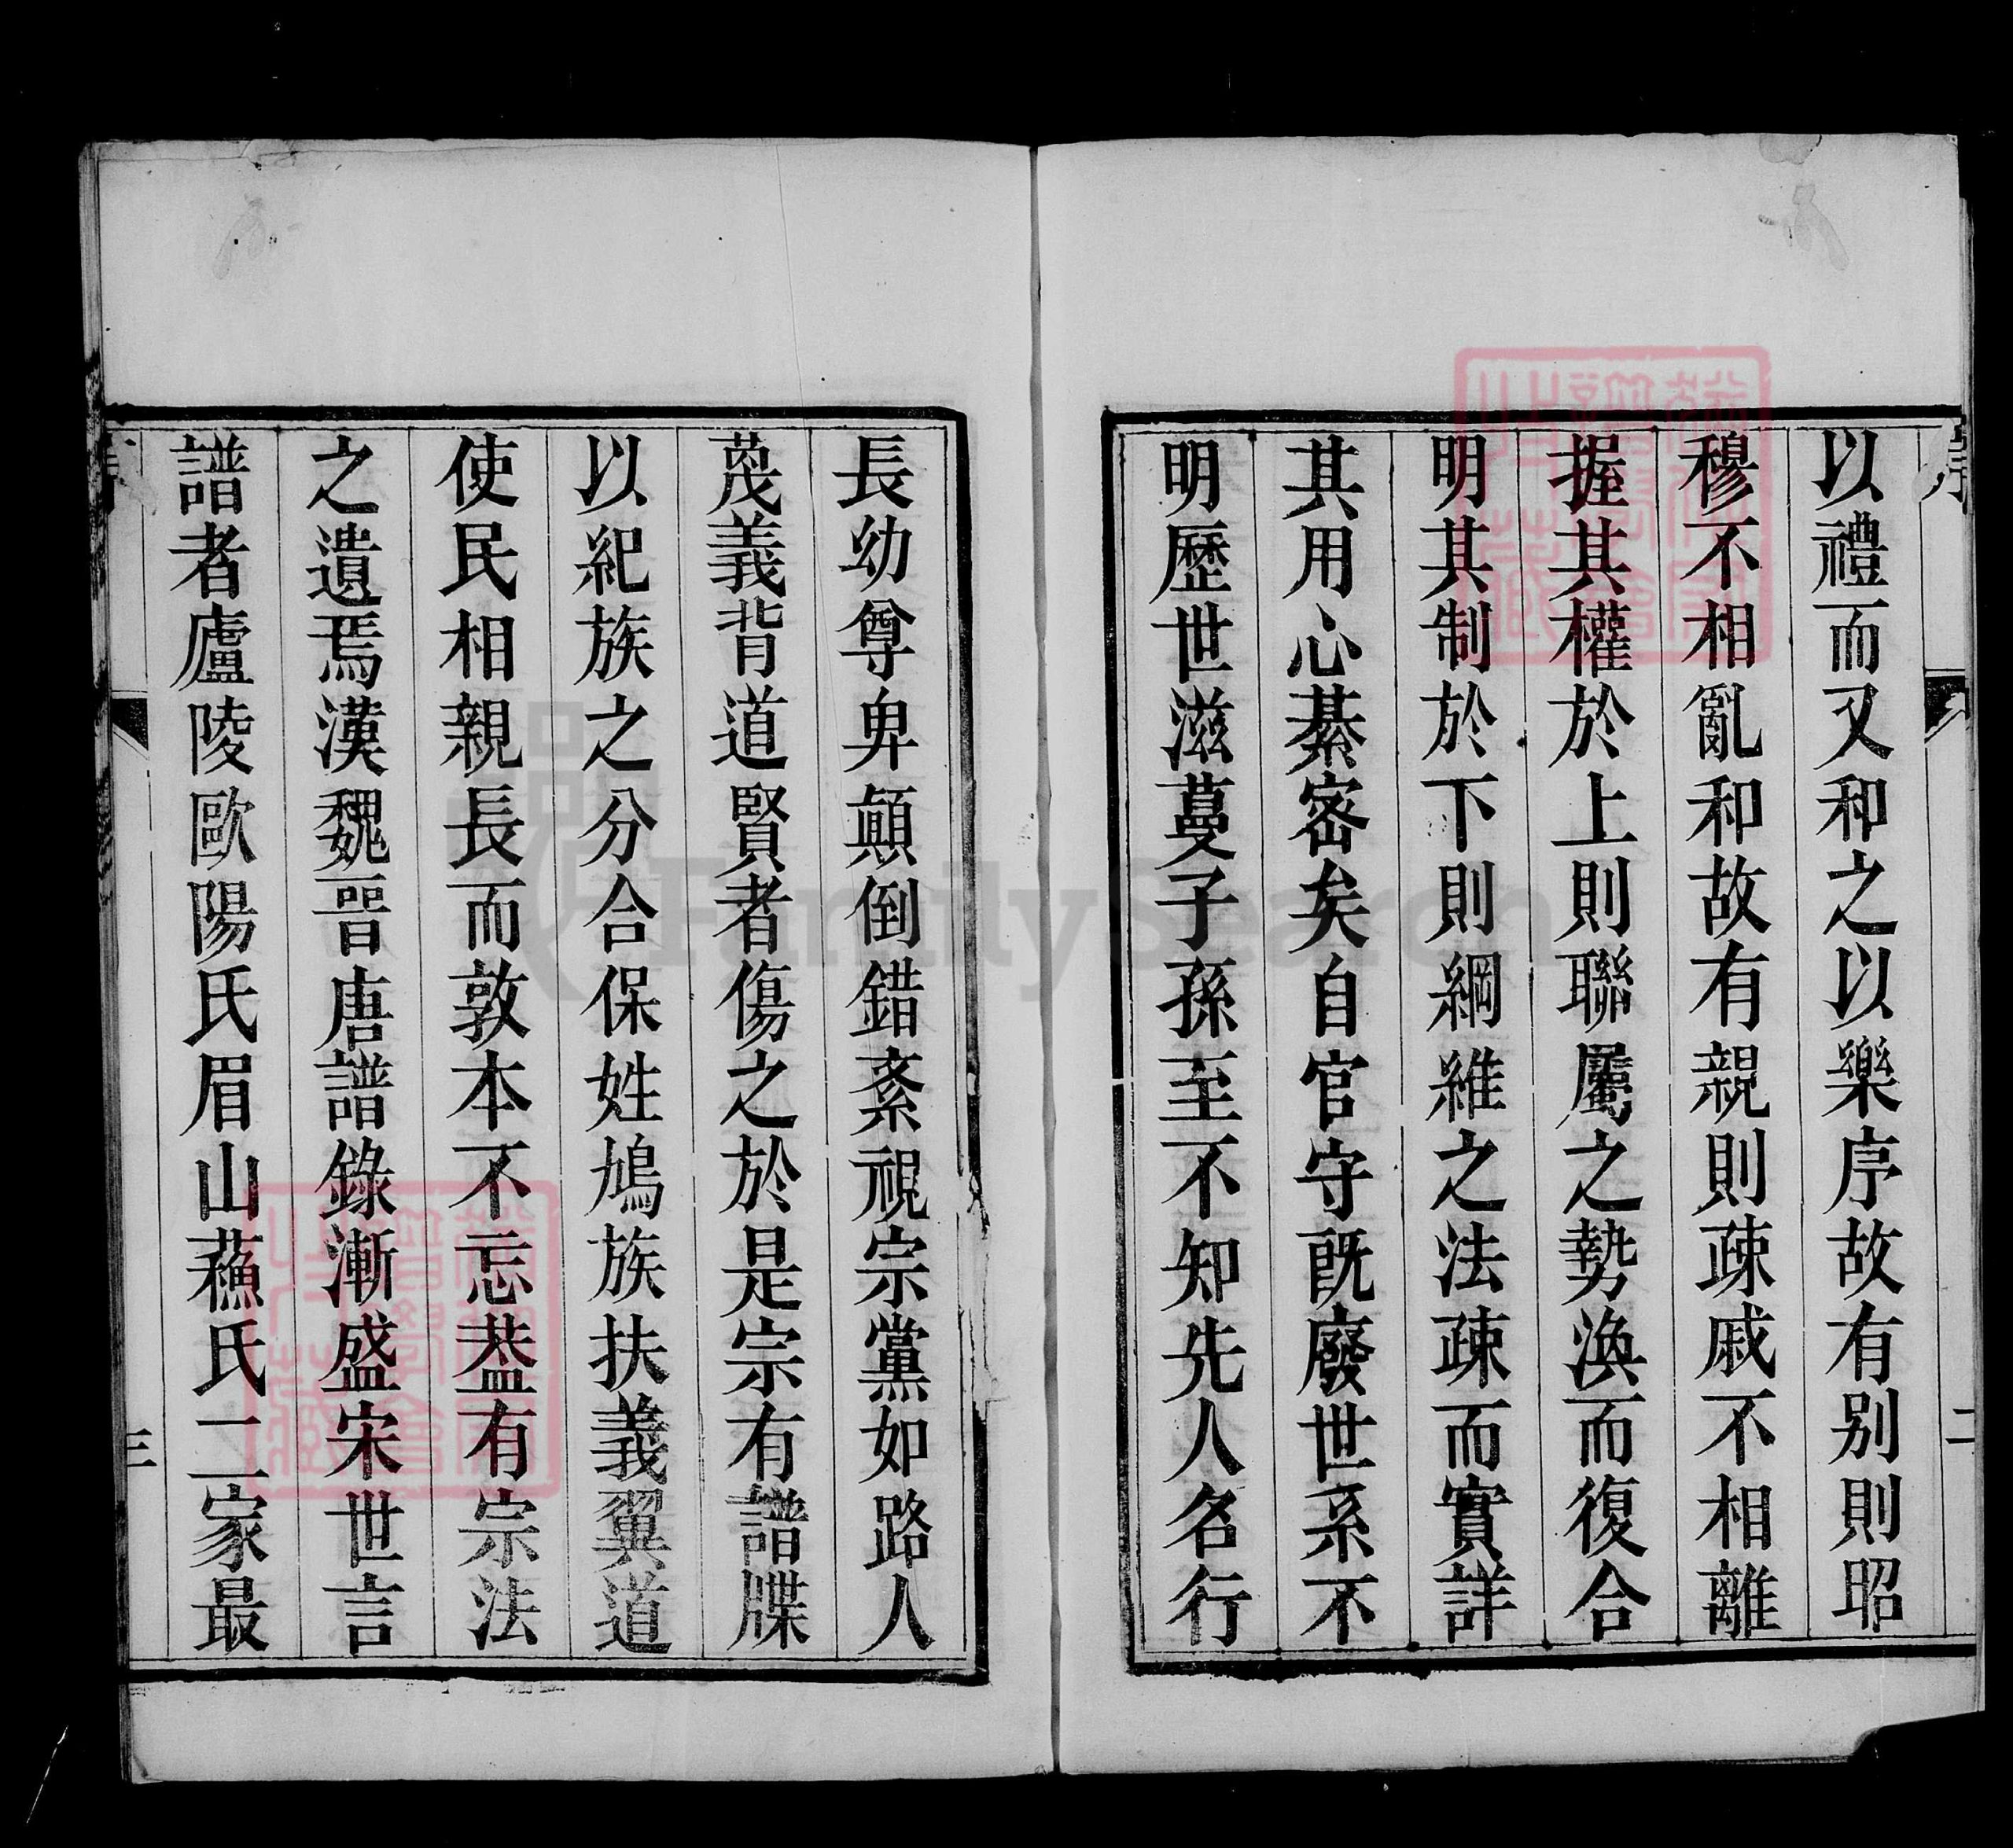 序
二
以禮而又和之以樂序故有别則昭
穆不相亂和故有親則疎戚不相離
握其權於上則聯屬之勢渙而復合
明其制於下則綱維之法疎而實詳
其用心綦密矣自官守既廢世系不
明歷世滋蔓子孫至不知先人名行
長幼尊卑顛倒錯紊視宗黨如路人
蔑義背道賢者傷之於是宗有譜牒
以紀族之分合保姓鳩族扶義翼道
使民相親長而敦本不忘葢有宗法
之遺焉漢魏晉唐譜錄漸盛宋世言
譜者廬陵歐陽氏眉山蘓氏二家最
三
FamilySearch